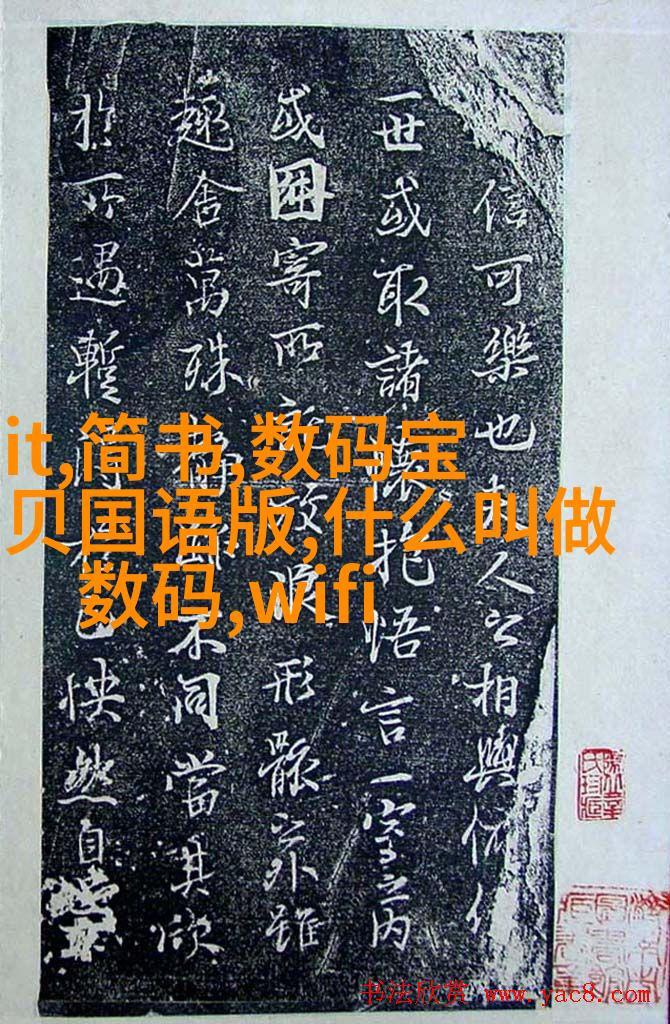 信可樂也夫人之相與俯仰
一世或取諸懷抱悟言一室之內
或因寄所託放浪形骸之外雖
趣舍萬殊靜不同當其欣
於所遇暫得於己怏然自
it,简书,数码宝
贝国语版,什么叫做
数码,wifi
书法欣赏 www.yac8.com